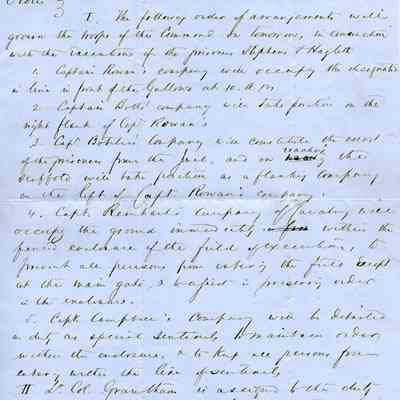 I. The following order of arrangements will
govern the troops of this Command on tomorrow, in connection
with the execution of the prisoners Stephens & Hazlett
1. Captain Rowan's company will occupy the designated
in line in front of the Gallows at 10 A.M.
2. Captain Botts' company will take position on the
right flank of Capt Rowan's
3. Capt Botelers Company will constitute the escort
of the prisoners from the Jail, and on reaching the
scaffold will take position as a flanking Company
on the left of Capt. Rowan's company.
4. Capt. Reinhart's Company of Cavalry will
occupy the ground immediately within the
fenced enclosure of the field of execution, to
prevent all persons from entering the field except
at the main gate, & to assist in preserving order
in the enclosure.
5. Capt. Campbell's Company will be detailed
on duty as special sentinels to maintain order
within the enclosure, & to keep all persons from
entering within the line of sentinels.
II Lt. Col. Grantham is assigned to the duty